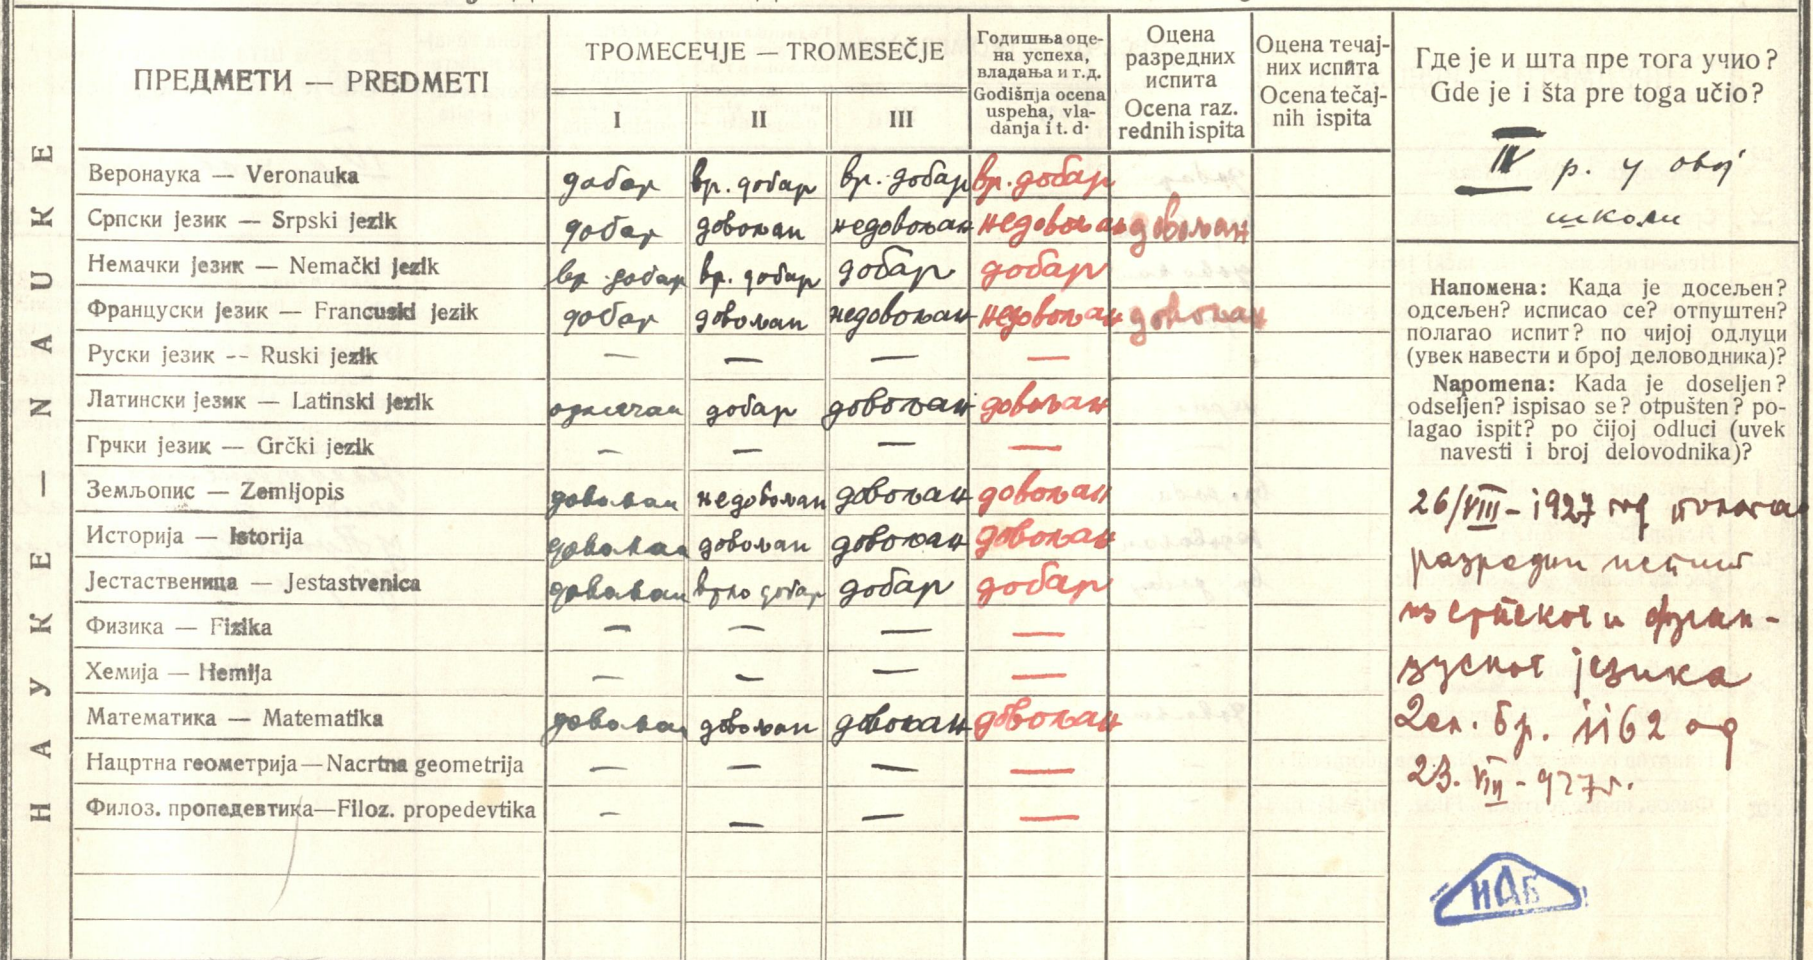 ПРЕДМЕТИ — PREDMETI
ТРОМЕСЕЧЈЕ — TROMESEČJE
I II III
Годишња оце-
на успеха,
владања и т.д.
Godišnja ocena
uspeha, vla-
danja i t. d.
Оцена
разредних
испита
Ocena raz.
rednih ispita
Оцена течај-
них испита
Ocena tečaj-
nih ispita
Где је и шта пре тога учио?
Gde je i šta pre toga učio?
IV р. у овој
школи
НАУКЕ — NAUKE
Веронаука — Veronauka добар вр. добар вр. добар вр. добар
Српски језик — Srpski jezik добар довољан недовољан недовољан довољан
Немачки језик — Nemački jezik вр добар вр. добар добар добар
Француски језик — Francuski jezik добар довољан недовољан недовољан довољан
Руски језик -- Ruski jezik — — — —
Латински језик — Latinski jezik одличан добар довољан довољан
Грчки језик — Grčki jezik — — — —
Земљопис — Zemljopis довољан недовољан довољан довољан
Историја — Istorija довољан довољан довољан довољан
Јестаственица — Jestastvenica довољан врло добар добар добар
Физика — Fizika — — — —
Хемија — Hemija — — — —
Математика — Matematika довољан довољан довољан довољан
Нацртна геометрија—Nacrtna geometrija — — — —
Филоз. пропедевтика—Filoz. propedevtika — — — —
Напомена: Када је досељен?
одсељен? исписао се? отпуштен?
полагао испит? по чијој одлуци
(увек навести и број деловодника)?
Napomena: Kada je doseljen?
odseljen? ispisao se? otpušten? po-
lagao ispit? po čijoj odluci (uvek
navesti i broj delovodnika)?
26/VIII – 1927 год полагао
разредни испит
из српског и фран-
цуског језика
Дел. бр. 1162 од
23. VIII – 927 г.
ИАБ